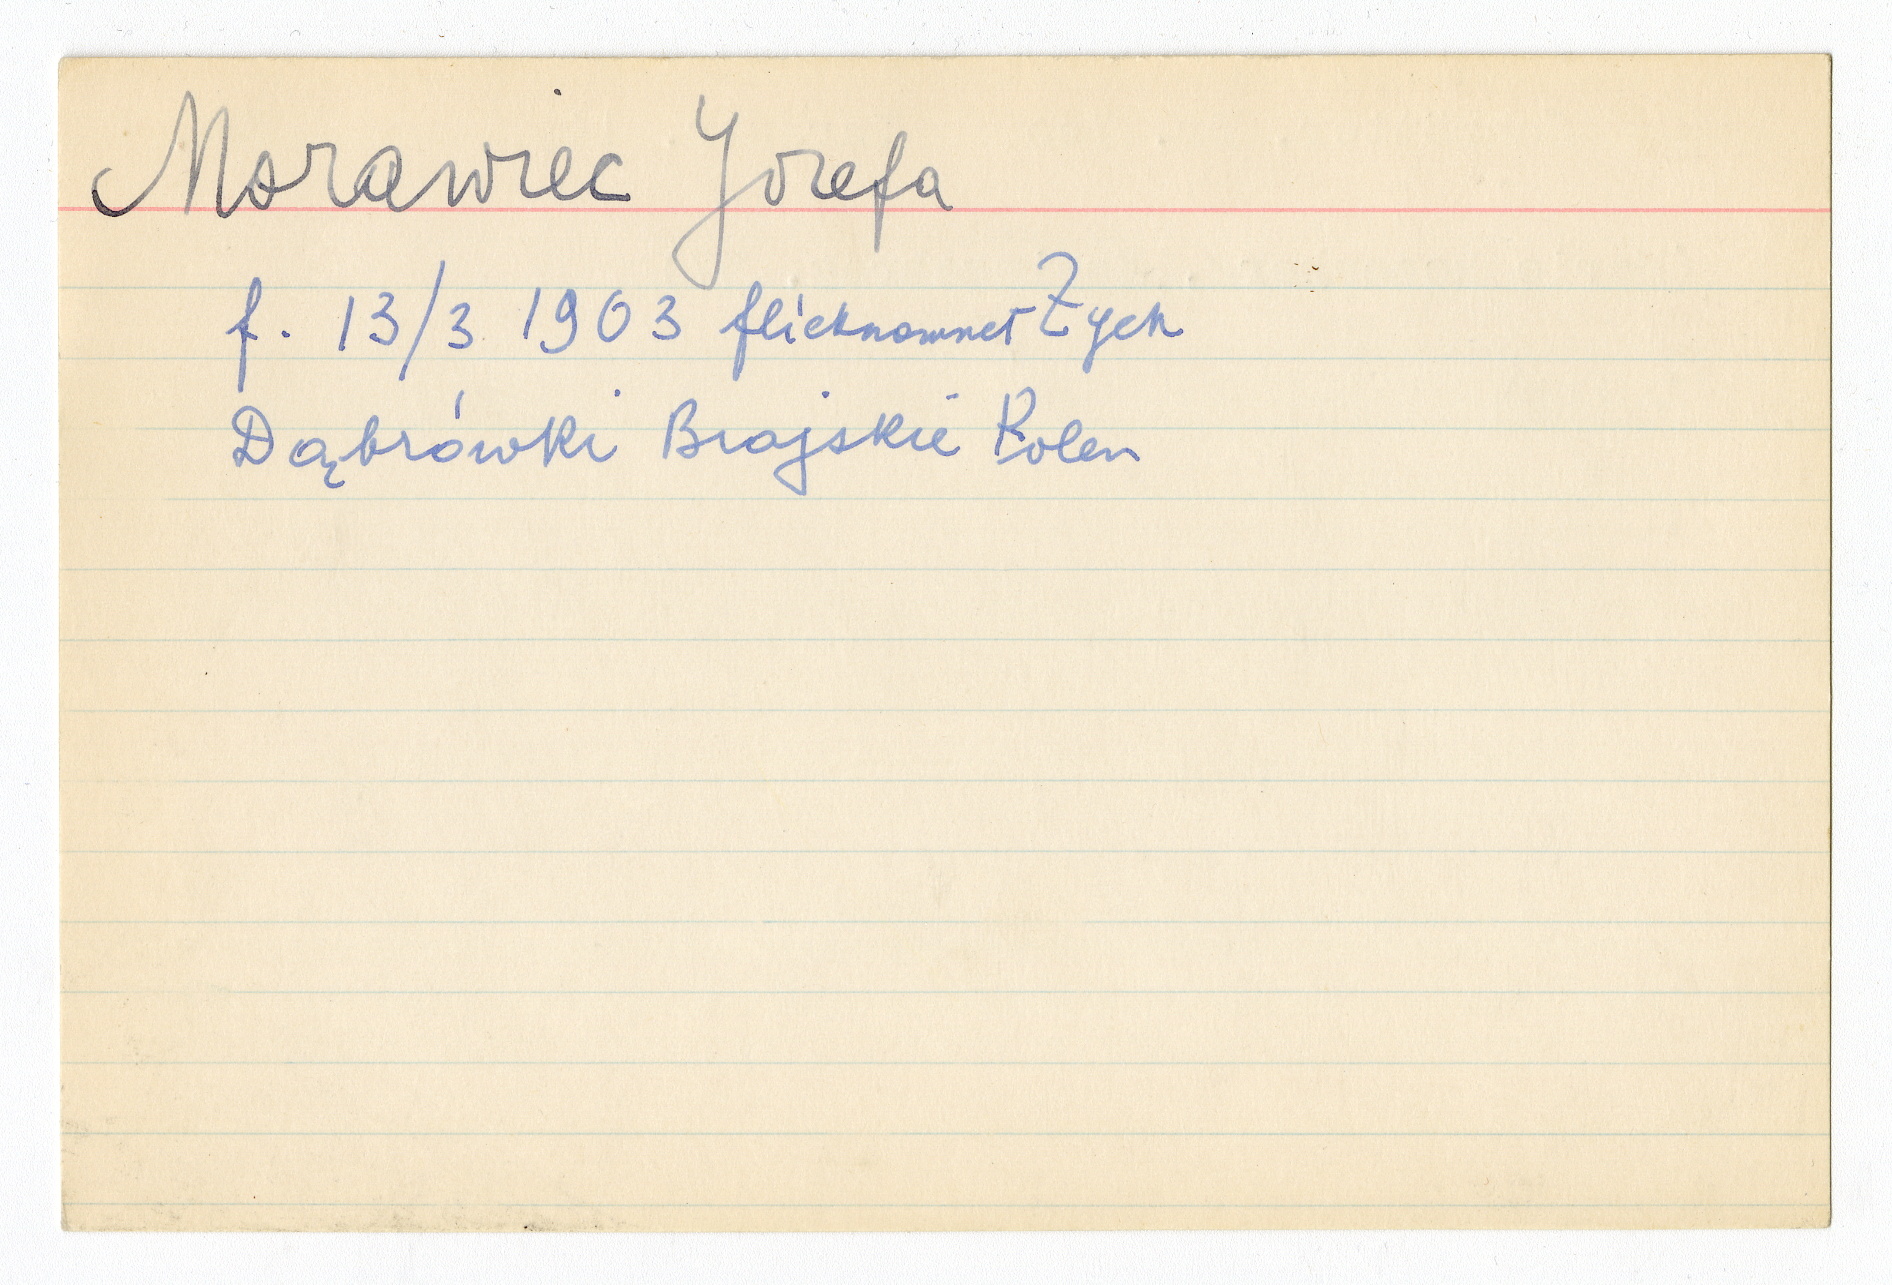 Morawiec Jozefa
f. 13/3 1903 flicknamnet Zych
Dąbrówki Brajskie Polen